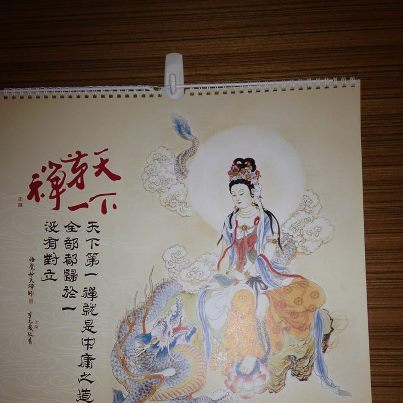 天下
第一
禪
天下第一禪就是中庸之道
全部都歸於一
沒有對立